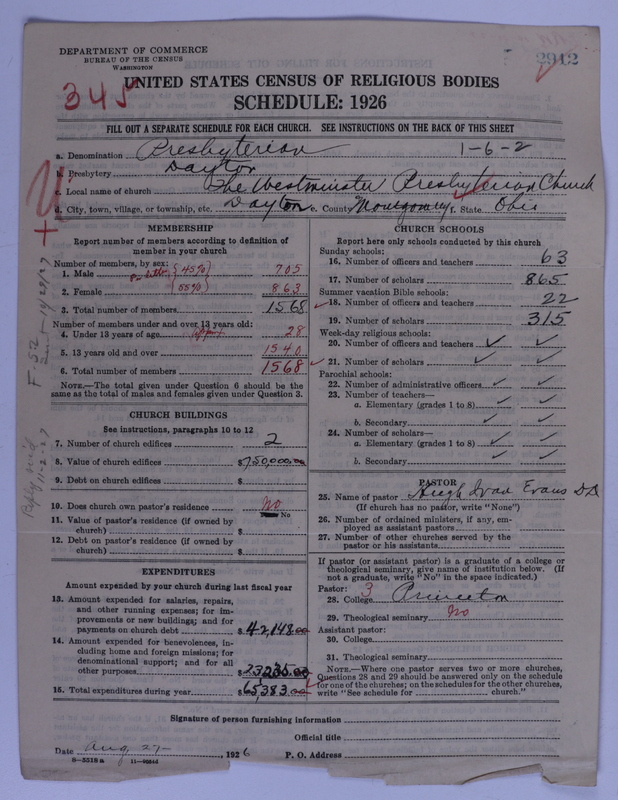 DEPARTMENT OF COMMERCE
BUREAU OF THE CENSUS
WASHINGTON
2912
345
UNITED STATES CENSUS OF RELIGIOUS BODIES
SCHEDULE: 1926
FILL OUT A SEPARATE SCHEDULE FOR EACH CHURCH. SEE INSTRUCTIONS ON THE BACK OF THIS SHEET
a. Denomination Presbyterian 1-6-2
b. Presbytery Dayton
c. Local name of church The Westminster Presbyterian Church
d. City, town, village, or township, etc. Dayton e. County Montgomery f. State Ohio
MEMBERSHIP
Report number of members according to definition of
member in your church
Number of members, by sex:
1. Male (45%) 705
2. Female (55%) 863
3. Total number of members 1568
Number of members under and over 13 years old:
4. Under 13 years of age approx 28
5. 13 years old and over 1540
6. Total number of members 1568
NOTE.—The total given under Question 6 should be the
same as the total of males and females given under Question 3.
CHURCH BUILDINGS
See instructions, paragraphs 10 to 12
7. Number of church edifices 2
8. Value of church edifices $750,000.00
9. Debt on church edifices $
10. Does church own pastor's residence No
No
11. Value of pastor's residence (if owned by
church) $
12. Debt on pastor's residence (if owned by
church) $
EXPENDITURES
Amount expended by your church during last fiscal year
13. Amount expended for salaries, repairs,
and other running expenses; for im-
provements or new buildings; and for
payments on church debt $42,148.00
14. Amount expended for benevolences, in-
cluding home and foreign missions; for
denominational support; and for all
other purposes $23235.00
15. Total expenditures during year $65,383.00
CHURCH SCHOOLS
Report here only schools conducted by this church
Sunday schools:
16. Number of officers and teachers 63
17. Number of scholars 865
Summer vacation Bible schools:
18. Number of officers and teachers 22
19. Number of scholars 315
Week-day religious schools:
20. Number of officers and teachers
21. Number of scholars
Parochial schools:
22. Number of administrative officers
23. Number of teachers—
a. Elementary (grades 1 to 8)
b. Secondary
24. Number of scholars—
a. Elementary (grades 1 to 8)
b. Secondary
PASTOR
25. Name of pastor Hugh Ivan Evans DD
(If church has no pastor, write "None")
26. Number of ordained ministers, if any, em-
ployed as assistant pastors
27. Number of other churches served by the
pastor or his assistants
If pastor (or assistant pastor) is a graduate of a college or
theological seminary, give name of institution below. (If
not a graduate, write "No" in the space indicated.)
Pastor: 3
28. College Princeton
29. Theological seminary No
Assistant pastor:
30. College
31. Theological seminary
NOTE.—Where one pastor serves two or more churches,
Questions 28 and 29 should be answered only on the schedule
for one of the churches; on the schedules for the other churches,
write "See schedule for church."
Signature of person furnishing information
Official title
Date Aug 27 , 1926 P. O. Address
8-5518a